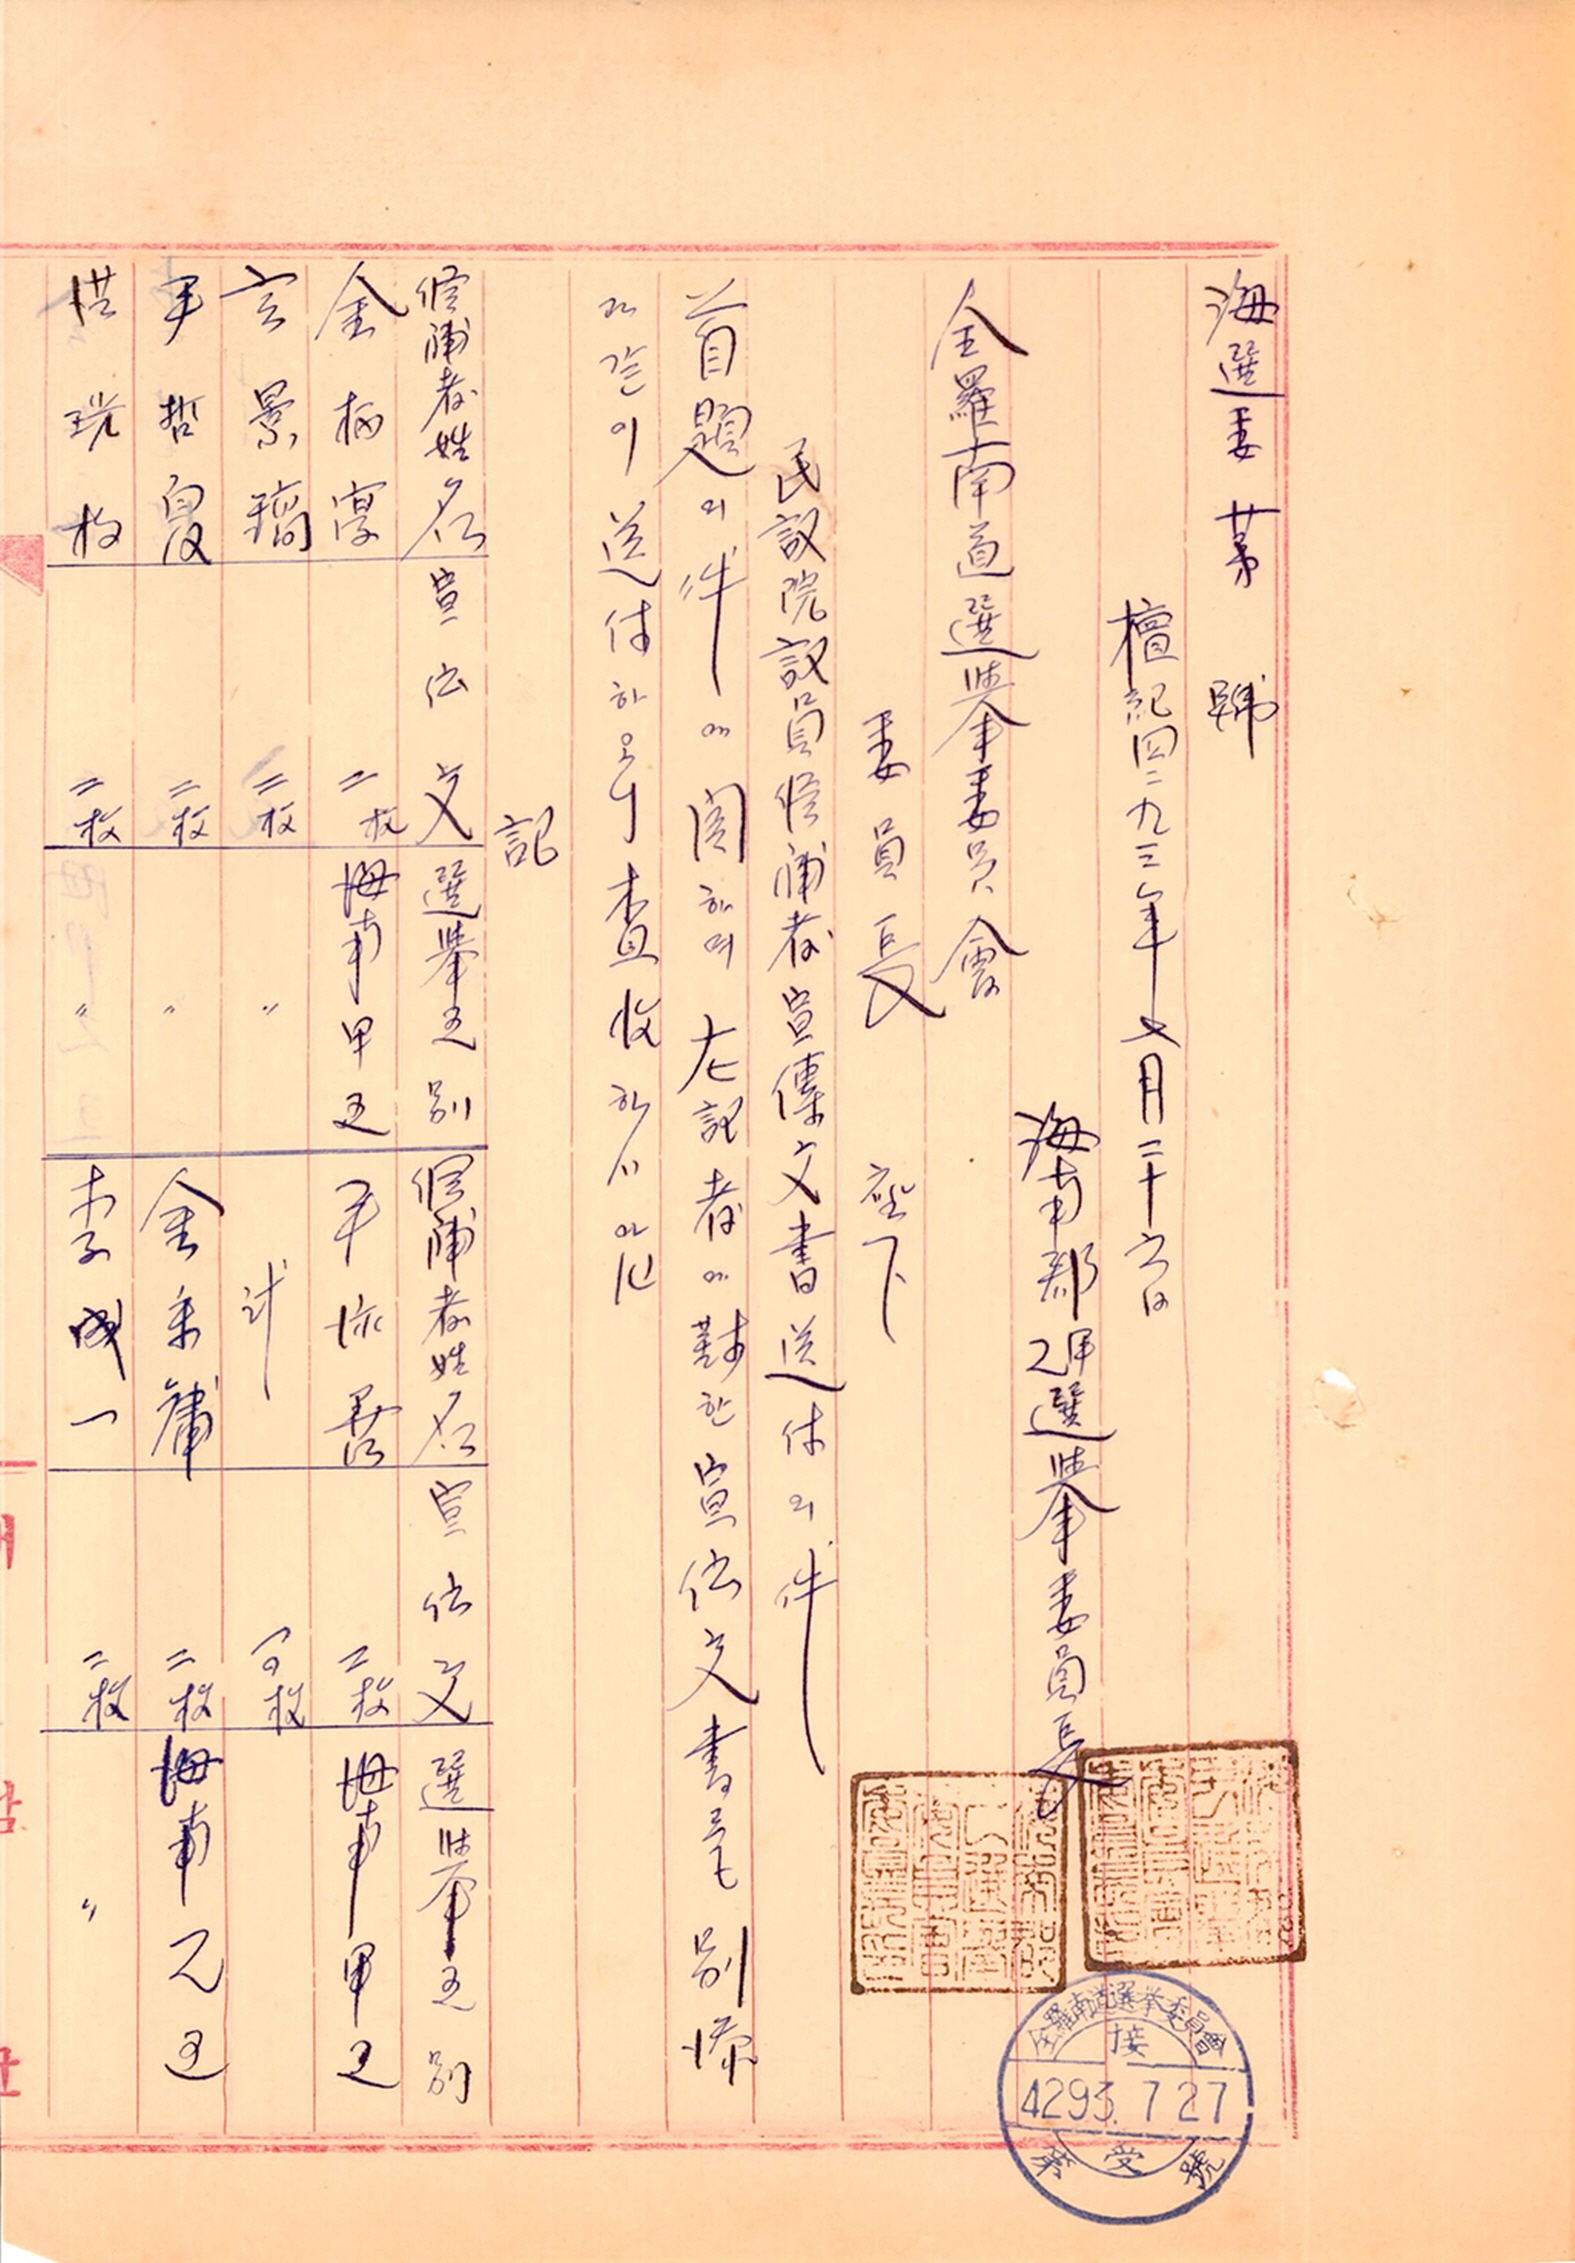 海選委第 號
檀紀四二九三年七月二十六日
海南郡 甲乙 選擧委員長
全羅南道選擧委員會
委員長 座下
民議院議員候補者宣傳文書送付의件
首題의件에關하여左記者에對한宣伝文書를別添
과같이送付하오니査收하시압기
記
候補者姓名 宣伝文 選擧区別 候補者姓名 宣伝文 選擧区別
金炳淳 二枚 海南甲区 尹 二枚 海南甲区
景 二枚 〃 計 10枚
尹哲夏 二枚 〃 金 二枚 海南乙区
洪 二枚 〃 李成一 二枚 〃
全羅南道選挙委員會
接
4293. 7 27
第 受 號